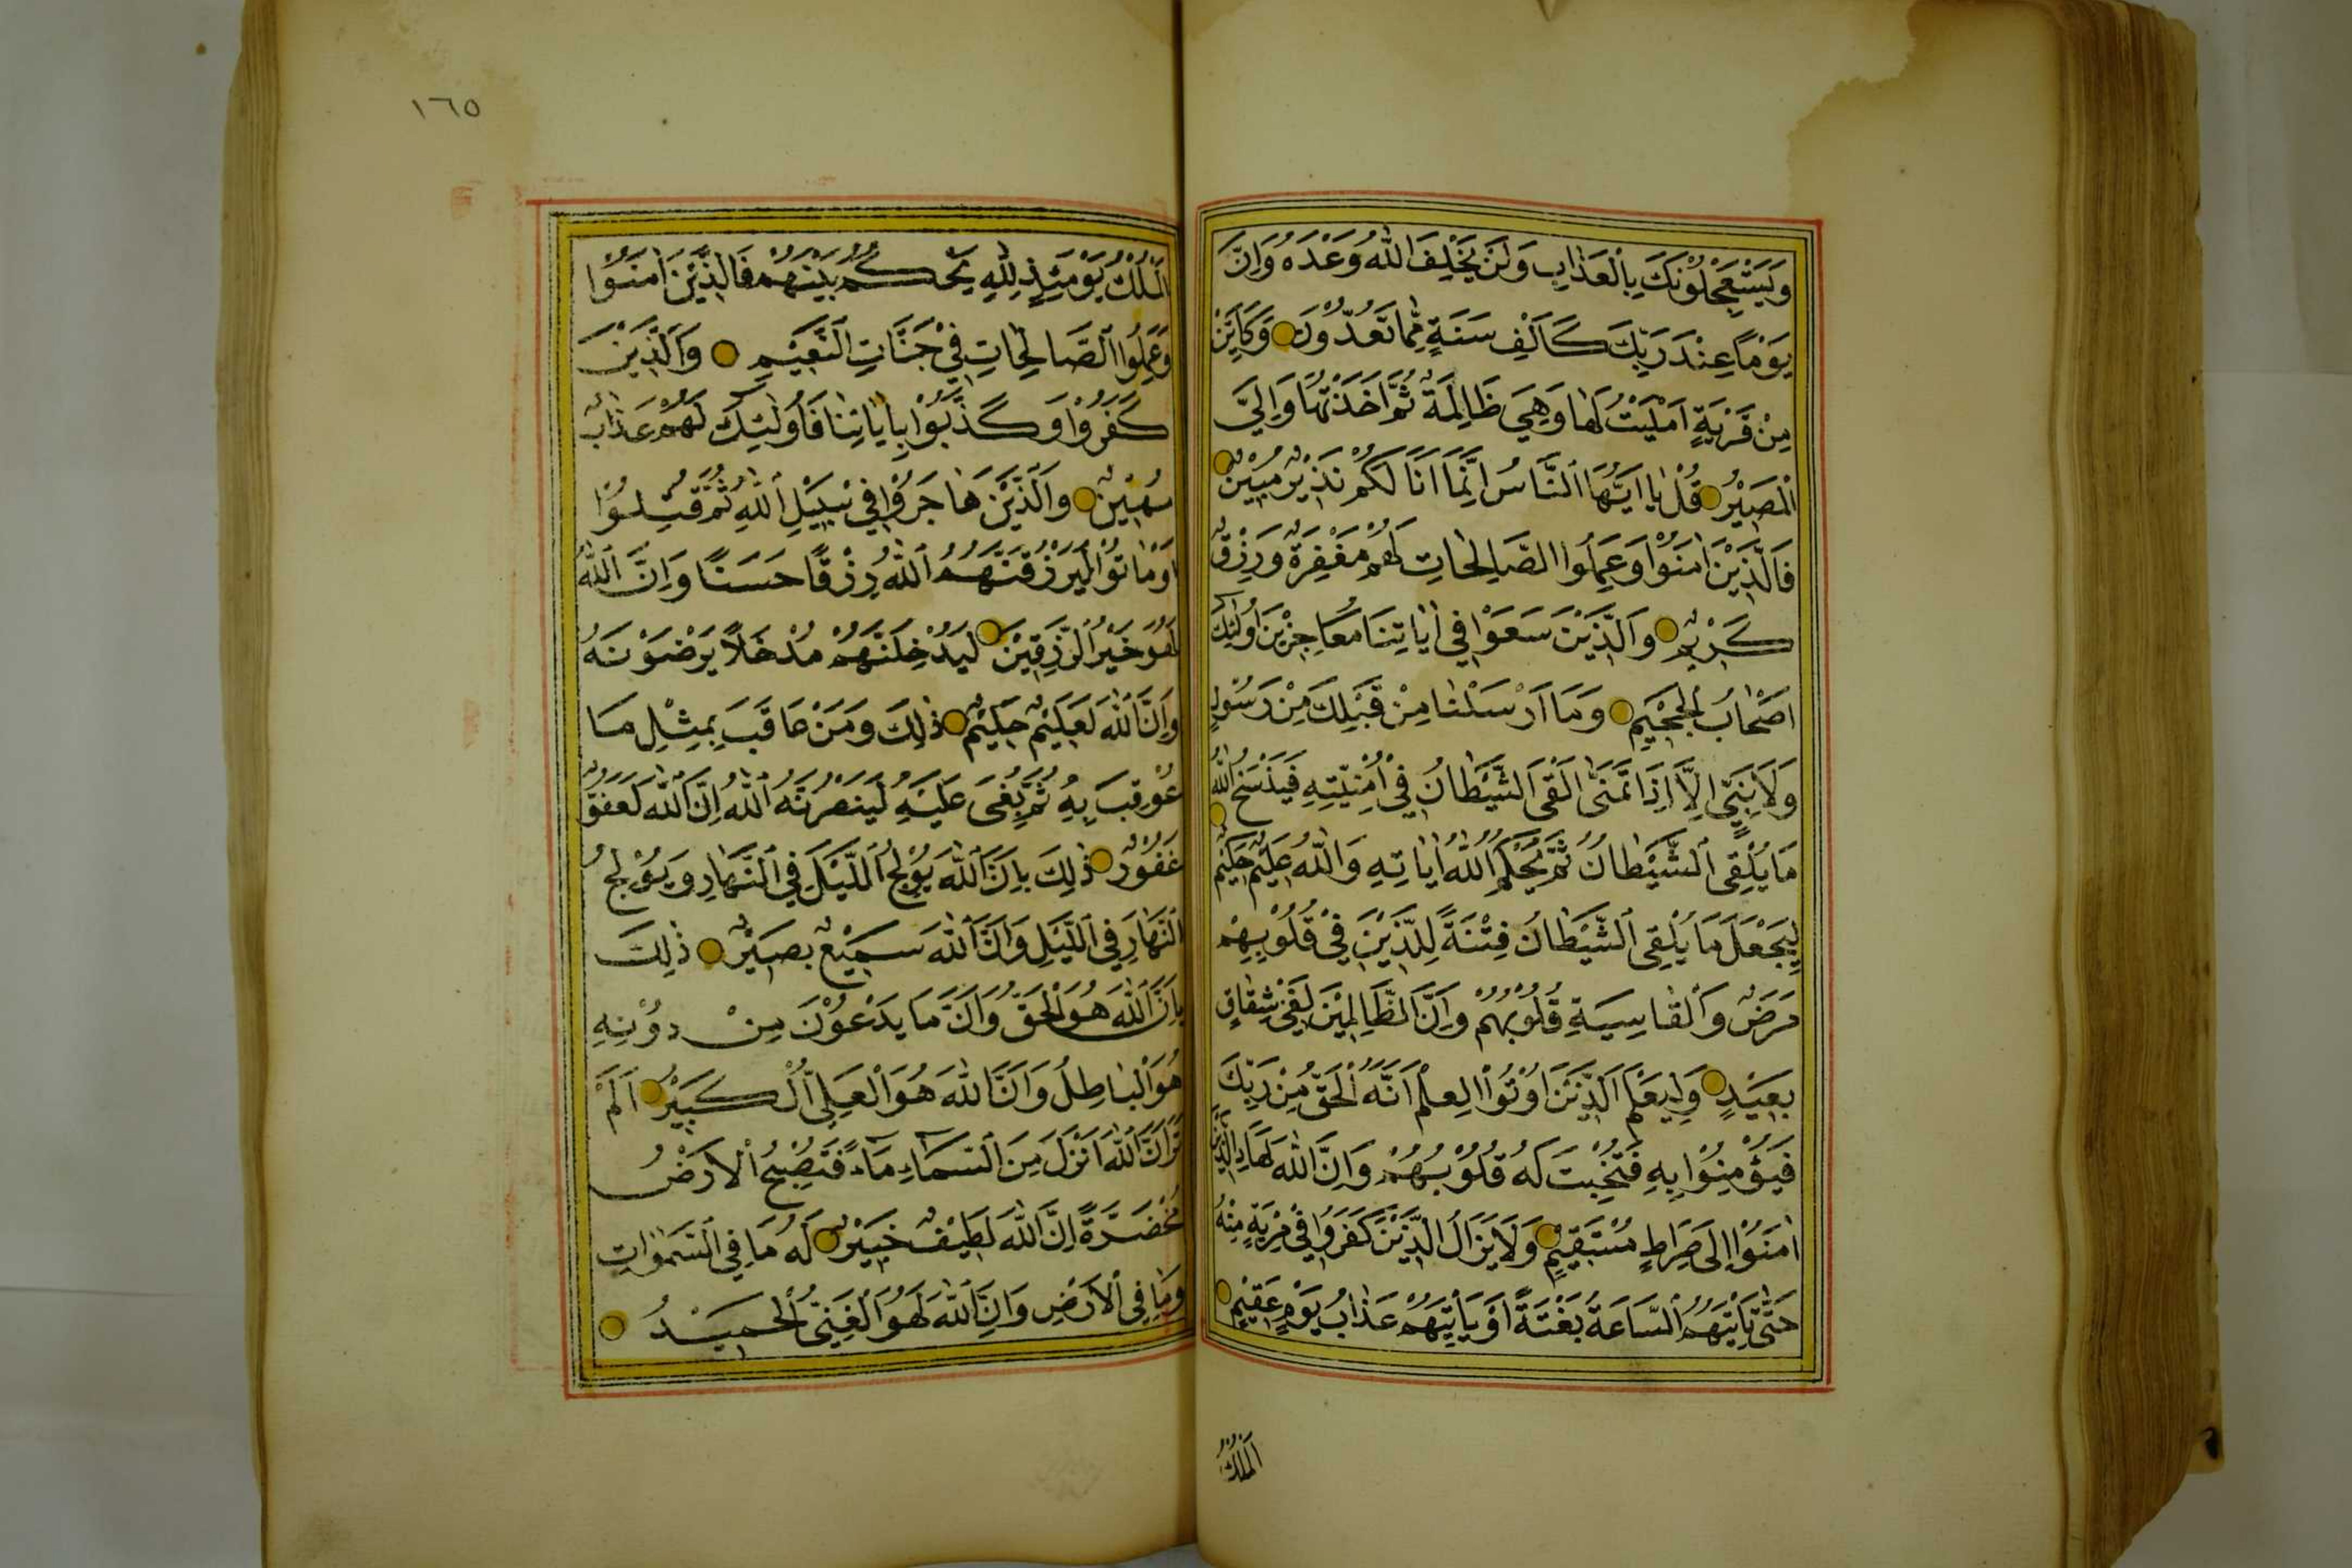 وَيَسْتَعْجِلُونَكَ بِالْعَذَابِ وَلَنْ يُخْلِفَ اللّٰهُ وَعْدَهُ وَاِنَّ
يَوْمًا عِنْدَ رَبِّكَ كَاَلْفِ سَنَةٍ مِمَّا تَعُدُّونَ وَكَاَيِّنْ
مِنْ قَرْيَةٍ اَمْلَيْتُ لَهَا وَهِيَ ظَالِمَةٌ ثُمَّ اَخَذْتُهَا وَاِلَيَّ
الْمَصِيْرُ قُلْ يَا اَيُّهَا النَّاسُ اِنَّمَا اَنَا لَكُمْ نَذِيْرٌ مُبِيْنٌ
فَالَّذِيْنَ اٰمَنُوْا وَعَمِلُوا الصَّالِحَاتِ لَهُمْ مَغْفِرَةٌ وَرِزْقٌ
كَرِيْمٌ وَالَّذِيْنَ سَعَوْا فِي اٰيَاتِنَا مُعَاجِزِيْنَ اُولٰئِكَ
اَصْحَابُ الْجَحِيْمِ وَمَا اَرْسَلْنَا مِنْ قَبْلِكَ مِنْ رَسُوْلٍ
وَلَا نَبِيٍّ اِلَّا اِذَا تَمَنّٰى اَلْقَى الشَّيْطَانُ فِي اُمْنِيَّتِهِ فَيَنْسَخُ اللّٰهُ
مَا يُلْقِى الشَّيْطَانُ ثُمَّ يُحْكِمُ اللّٰهُ اٰيَاتِهِ وَاللّٰهُ عَلِيْمٌ حَكِيْمٌ
لِيَجْعَلَ مَا يُلْقِى الشَّيْطَانُ فِتْنَةً لِلَّذِيْنَ فِيْ قُلُوْبِهِمْ
مَرَضٌ وَالْقَاسِيَةِ قُلُوْبُهُمْ وَاِنَّ الظَّالِمِيْنَ لَفِيْ شِقَاقٍ
بَعِيْدٍ وَلِيَعْلَمَ الَّذِيْنَ اُوْتُوا الْعِلْمَ اَنَّهُ الْحَقُّ مِنْ رَبِّكَ
فَيُؤْمِنُوْا بِهِ فَتُخْبِتَ لَهُ قُلُوْبُهُمْ وَاِنَّ اللّٰهَ لَهَادِ الَّذِيْنَ
اٰمَنُوْا اِلَى صِرَاطٍ مُسْتَقِيْمٍ وَلَا يَزَالُ الَّذِيْنَ كَفَرُوْا فِيْ مِرْيَةٍ مِنْهُ
حَتّٰى تَأْتِيَهُمُ السَّاعَةُ بَغْتَةً اَوْ يَأْتِيَهُمْ عَذَابُ يَوْمٍ عَقِيْمٍ
اَلْمُلْكُ
١٦٥
اَلْمُلْكُ يَوْمَئِذٍ لِلّٰهِ يَحْكُمُ بَيْنَهُمْ فَالَّذِيْنَ اٰمَنُوْا
وَعَمِلُوا الصَّالِحَاتِ فِيْ جَنَّاتِ النَّعِيْمِ وَالَّذِيْنَ
كَفَرُوْا وَكَذَّبُوْا بِاٰيَاتِنَا فَاُولٰئِكَ لَهُمْ عَذَابٌ
مُهِيْنٌ وَالَّذِيْنَ هَاجَرُوْا فِيْ سَبِيْلِ اللّٰهِ ثُمَّ قُتِلُوْا
اَوْ مَاتُوْا لَيَرْزُقَنَّهُمُ اللّٰهُ رِزْقًا حَسَنًا وَاِنَّ اللّٰهَ
لَهُوَ خَيْرُ الرَّزِقِيْنَ لَيُدْخِلَنَّهُمْ مُدْخَلًا يَرْضَوْنَهُ
وَاِنَّ اللّٰهَ لَعَلِيْمٌ حَلِيْمٌ ذٰلِكَ وَمَنْ عَاقَبَ بِمِثْلِ مَا
عُوْقِبَ بِهِ ثُمَّ بُغِىَ عَلَيْهِ لَيَنْصُرَنَّهُ اللّٰهُ اِنَّ اللّٰهَ لَعَفُوٌّ
غَفُوْرٌ ذٰلِكَ بِاَنَّ اللّٰهَ يُوْلِجُ اللَّيْلَ فِي النَّهَارِ وَيُوْلِجُ
النَّهَارَ فِي اللَّيْلِ وَاَنَّ اللّٰهَ سَمِيْعٌ بَصِيْرٌ ذٰلِكَ
بِاَنَّ اللّٰهَ هُوَ الْحَقُّ وَاَنَّ مَا يَدْعُوْنَ مِنْ دُوْنِهِ
هُوَ الْبَاطِلُ وَاَنَّ اللّٰهَ هُوَ الْعَلِيُّ الْكَبِيْرُ اَلَمْ
تَرَ اَنَّ اللّٰهَ اَنْزَلَ مِنَ السَّمَآءِ مَآءً فَتُصْبِحُ الْاَرْضُ
مُخْضَرَّةً اِنَّ اللّٰهَ لَطِيْفٌ خَبِيْرٌ لَهُ مَا فِي السَّمٰوَاتِ
وَمَا فِي الْاَرْضِ وَاِنَّ اللّٰهَ لَهُوَ الْغَنِيُّ الْحَمِيْدُ